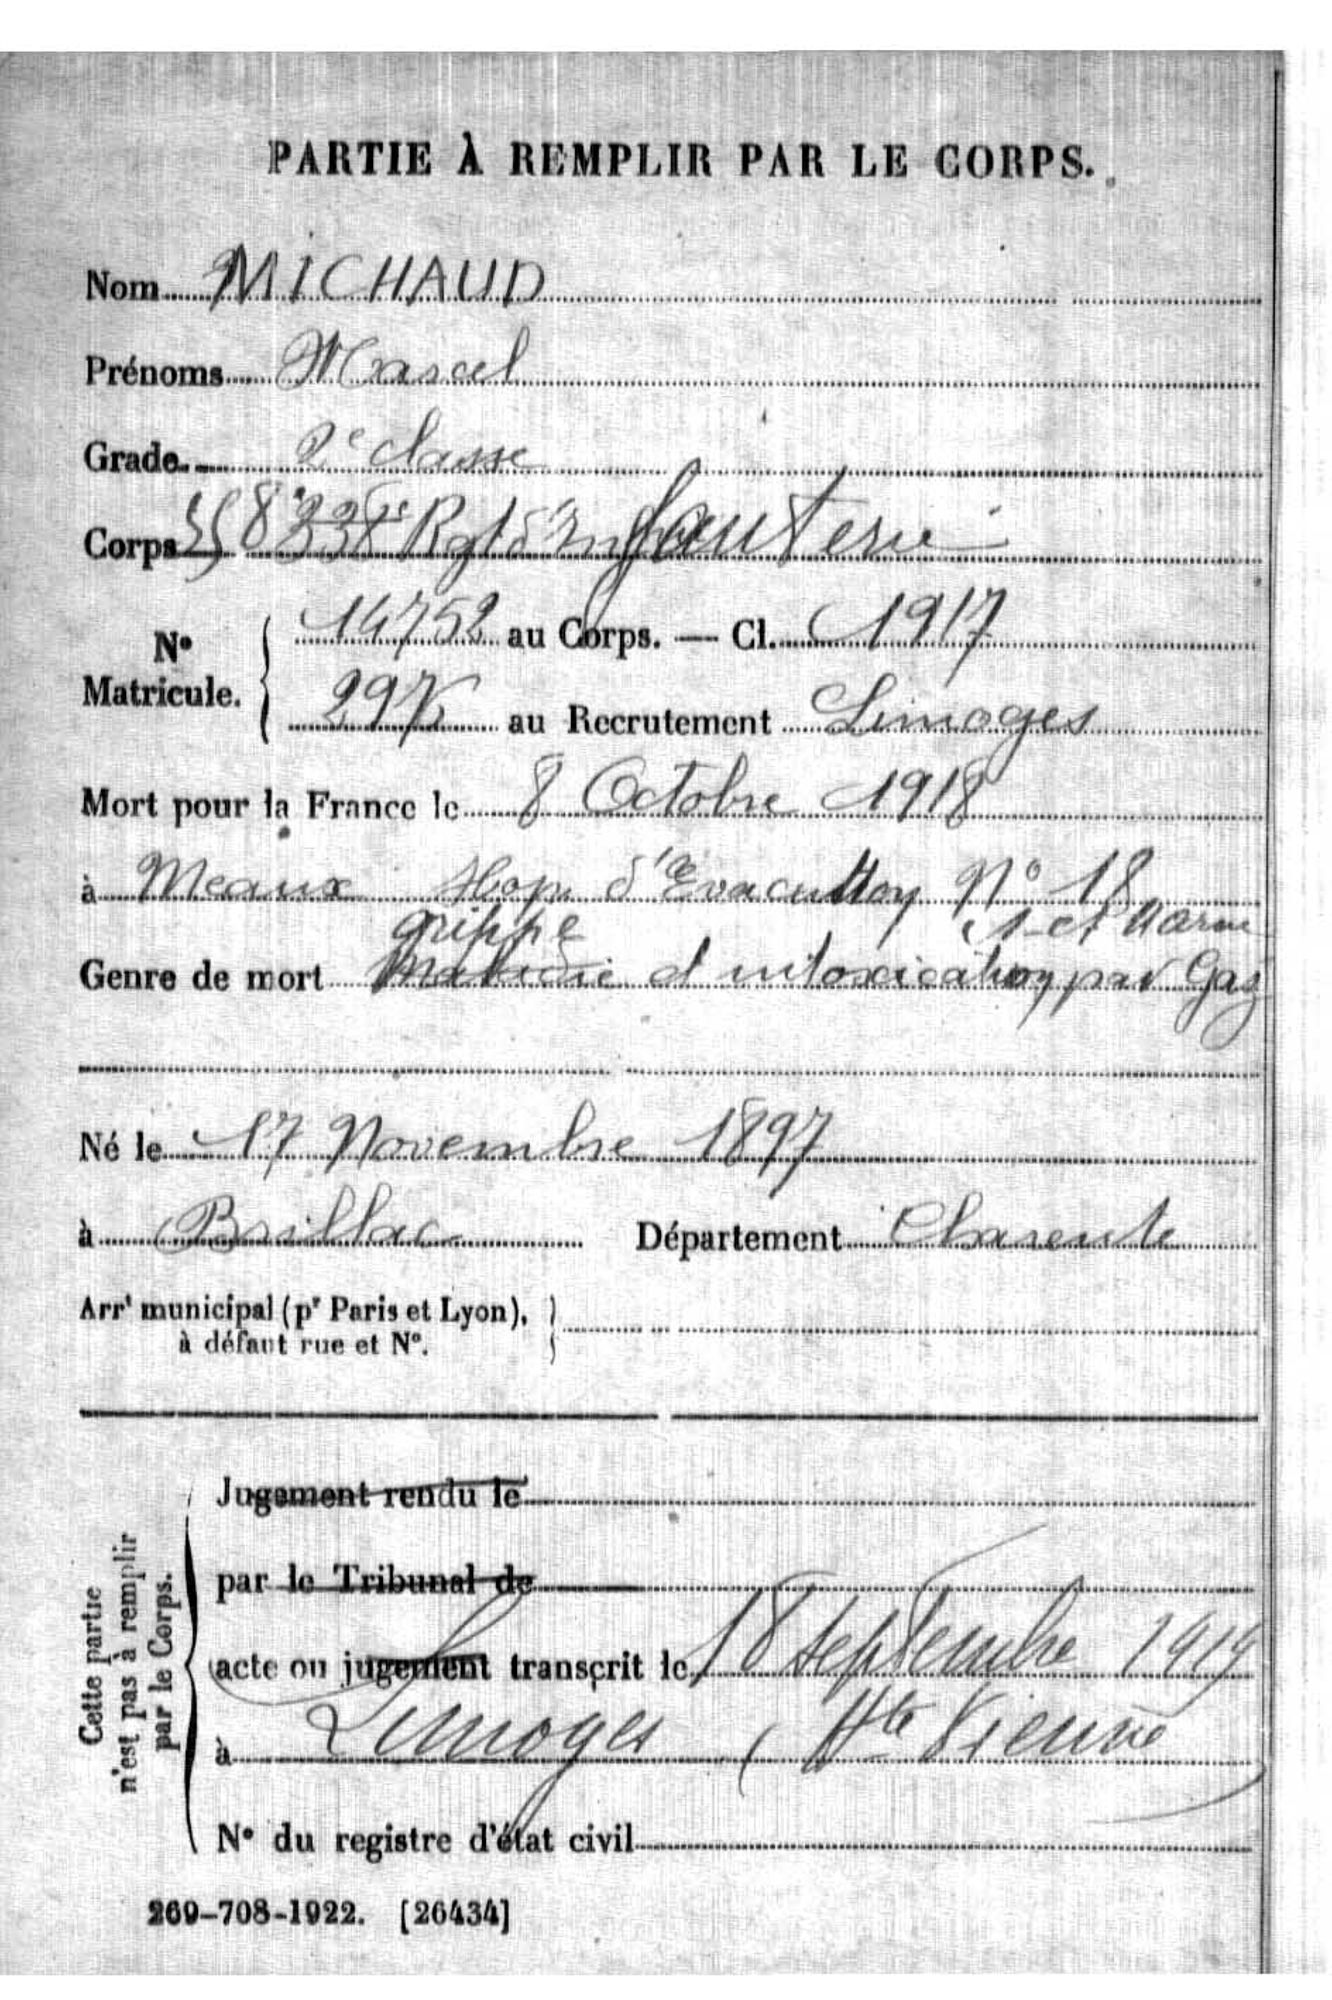 PARTIE À REMPLIR PAR LE CORPS.
Nom MICHAUD
Prénoms Marcel
Grade 2e classe
Corps 358 Rgt d'Infanterie
No Matricule. 14752 au Corps. — Cl. 1917
297 au Recrutement Limoges
Mort pour la France le 8 Octobre 1918
à Meaux Hop. d'Evacuation No 18
S-et Marne
grippe
Genre de mort Maladie et intoxication par Gaz
Né le 17 Novembre 1897
à Brillac Département Charente
Arrt municipal (pr Paris et Lyon),
à défaut rue et No.
Cette partie
n'est pas à remplir
par le Corps.
Jugement rendu le
par le Tribunal de
acte ou jugement transcrit le 18 Septembre 1919
à Limoges (Hte Vienne
No du registre d'état civil
269-708-1922. [26434]